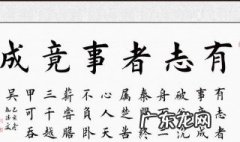 有志者事竟成
有志者
事竟成
破釜沉
舟百二
秦關終
屬楚苦
心人天
不負臥
薪嘗膽
三千越
甲可吞
吳
广东龙网